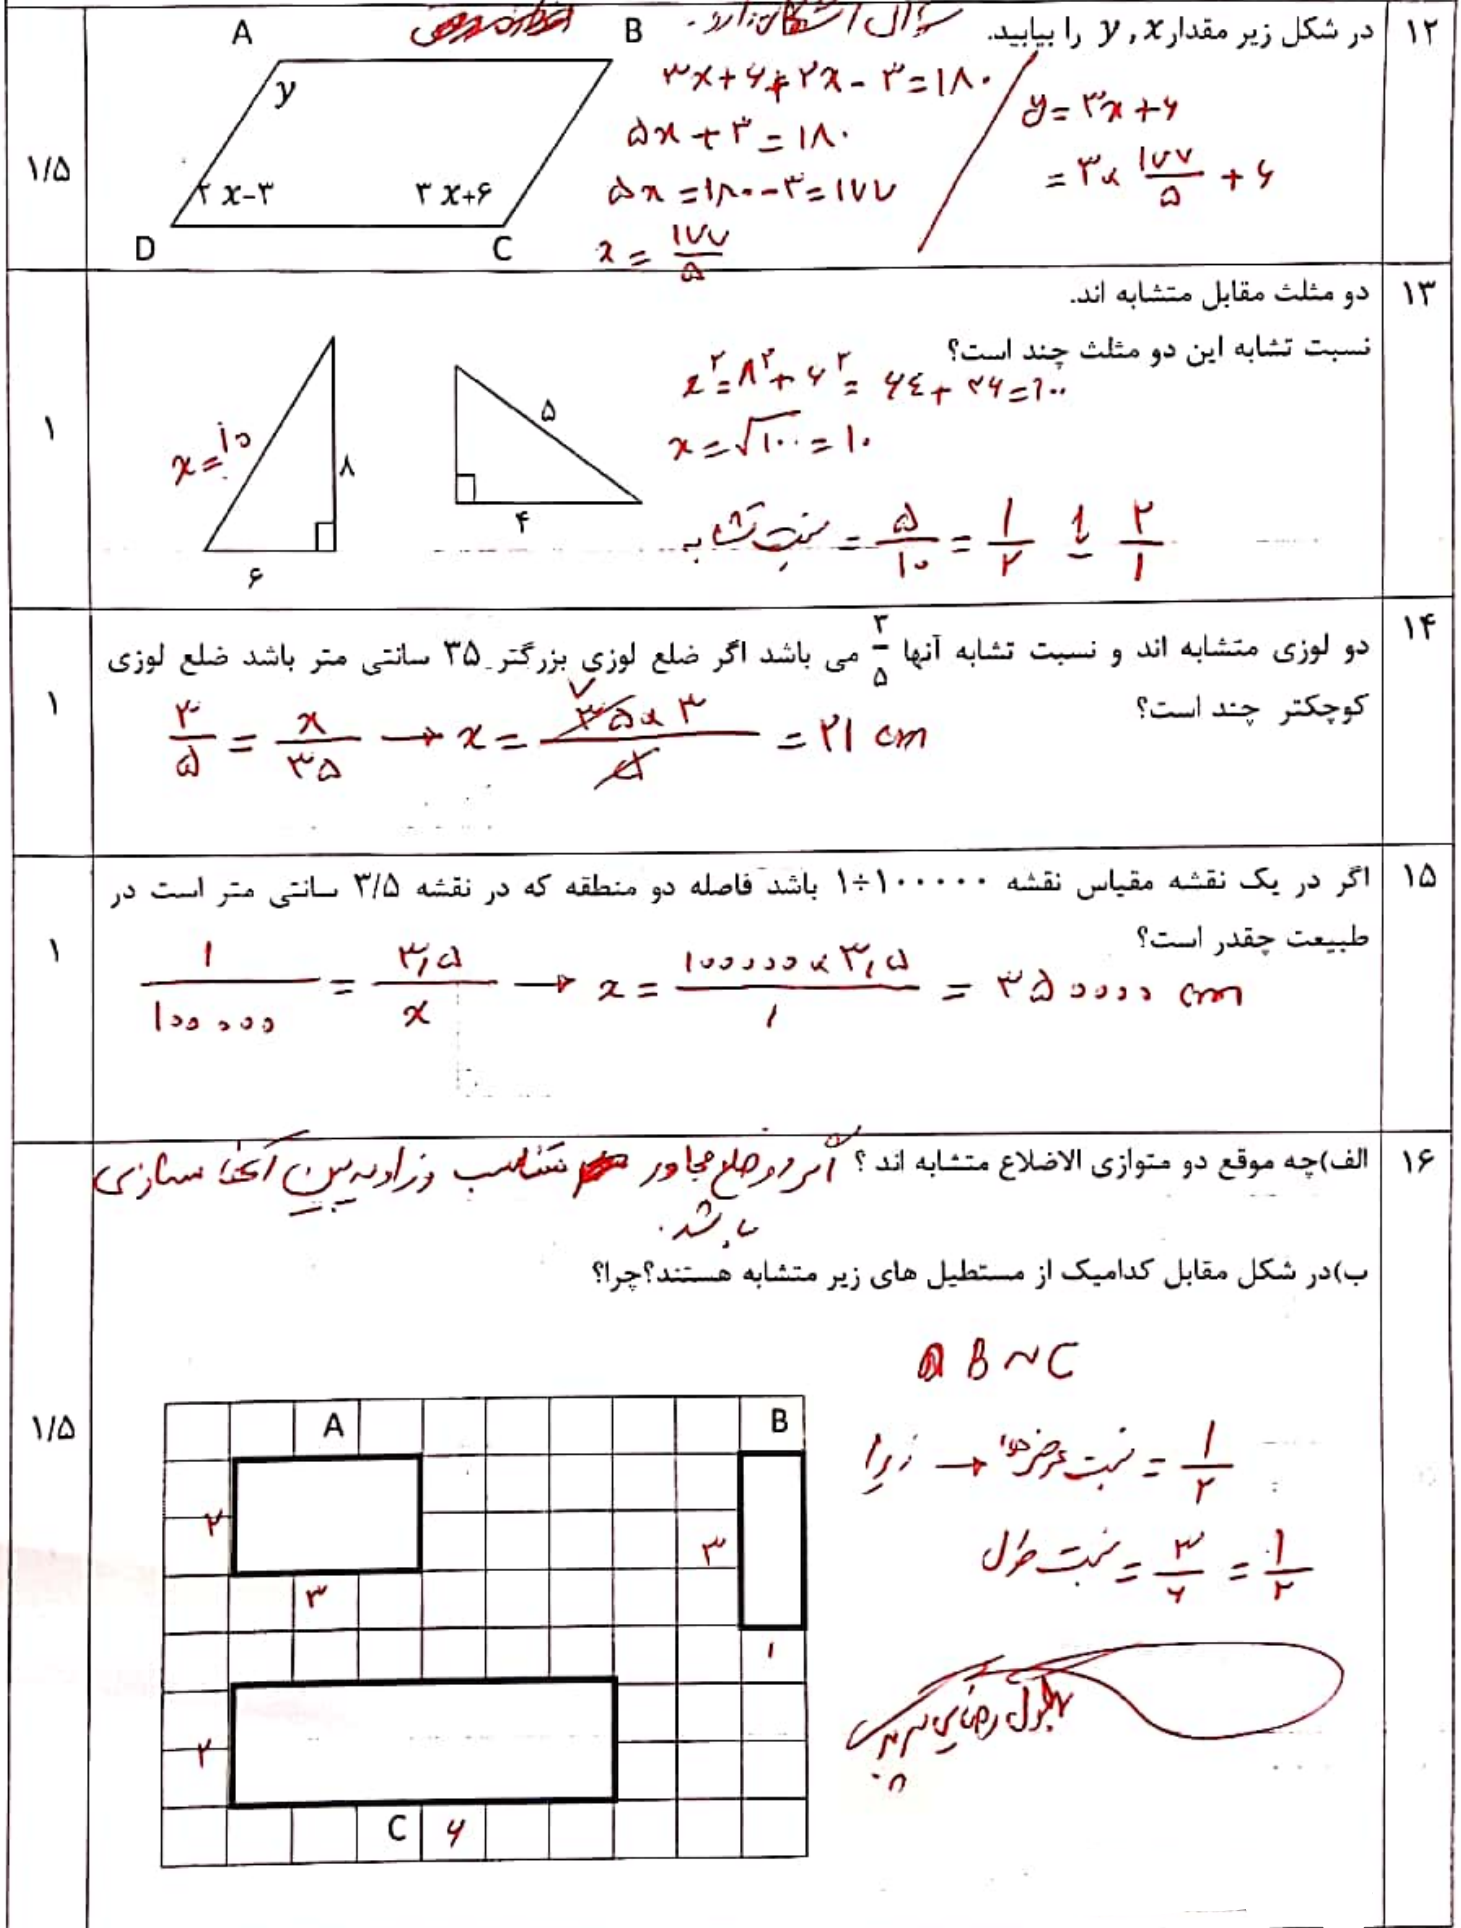 ۱۲
در شکل زیر مقدار x , y را بیابید.
سوال اشکال دارد.
۱/۵
A
B
C
D
y
۲ x-۳
۳ x+۶
۳x+۶+۲x-۳=۱۸۰
۵x+۳=۱۸۰
۵x=۱۸۰-۳=۱۷۷
x = ۱۷۷/۵
y=۳x+۶
= ۳× ۱۷۷/۵ + ۶
۱۳
دو مثلث مقابل متشابه اند.
نسبت تشابه این دو مثلث چند است؟
۱
x=۱۰
۸
۶
۵
۴
x²=۸²+۶²= ۶۴+۳۶=۱۰۰
x=√۱۰۰=۱۰
نسبت تشابه = ۵/۱۰ = ۱/۲ یا ۲/۱
۱۴
دو لوزی متشابه اند و نسبت تشابه آنها ۳/۵ می باشد اگر ضلع لوزی بزرگتر ۳۵ سانتی متر باشد ضلع لوزی
کوچکتر چند است؟
۱
۳/۵ = x/۳۵ → x = ۳۵×۳/۵ = ۲۱ cm
۷
۱۵
اگر در یک نقشه مقیاس نقشه ۱÷۱۰۰۰۰۰ باشد فاصله دو منطقه که در نقشه ۳/۵ سانتی متر است در
طبیعت چقدر است؟
۱
۱/۱۰۰۰۰۰ = ۳,۵/x → x = ۱۰۰۰۰۰×۳,۵/۱ = ۳۵۰۰۰۰ cm
۱۶
الف)چه موقع دو متوازی الاضلاع متشابه اند ؟ اگر دو ضلع مجاور متناسب و زاویه بین آنها مساوی
باشد.
ب)در شکل مقابل کدامیک از مستطیل های زیر متشابه هستند؟چرا؟
۱/۵
B ~ C
زیرا → نسبت عرض‌ها = ۱/۲
نسبت طول = ۳/۶ = ۱/۲
A
۲
۳
B
۳
۱
۲
C
۶